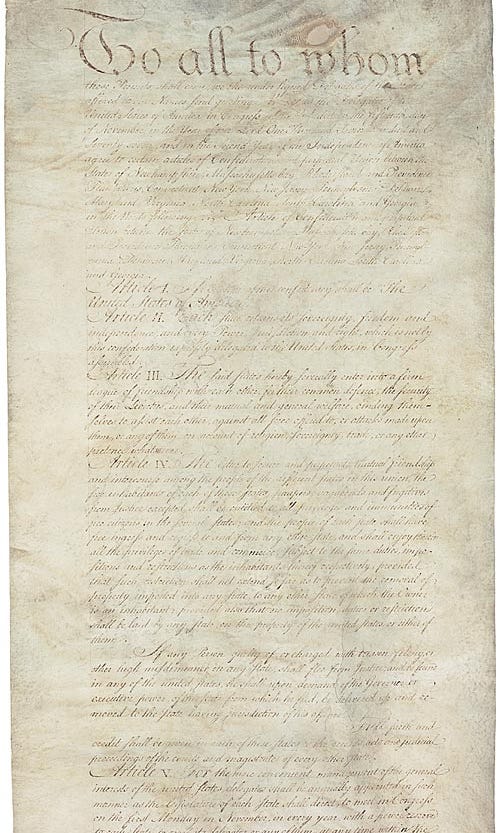 To all to whom
these Presents shall come, we the under signed Delegates of the States
affixed to our Names send greeting. Whereas the Delegates of the
United States of America in Congress assembled did on the fifteenth day
of November in the Year of our Lord One Thousand Seven Hundred and
Seventy seven, and in the Second Year of the Independence of America
agree to certain articles of Confederation and perpetual Union between the
States of Newhampshire, Massachusetts-bay, Rhodeisland and Providence
Plantations, Connecticut, New York, New Jersey, Pennsylvania, Delaware,
Maryland, Virginia, North Carolina, South Carolina and Georgia
in the Words following, viz. Articles of Confederation and perpetual
Union between the States of Newhampshire, Massachusetts-bay, Rhodeisland
and Providence Plantations, Connecticut, New York, New Jersey, Pennsyl-
vania, Delaware, Maryland, Virginia, North Carolina, South Carolina
and Georgia.
Article I. The Stile of this confederacy shall be "The
United States of America."
Article II. Each state retains its sovereignty, freedom and
independence, and every Power, Jurisdiction and right, which is not by
this confederation expressly delegated to the United States, in Congress
assembled.
Article III. The said states hereby severally enter into a firm
league of friendship with each other, for their common defence, the security
of their Liberties, and their mutual and general welfare, binding them-
selves to assist each other, against all force offered to, or attacks made upon
them, or any of them, on account of religion, sovereignty, trade, or any other
pretence whatever.
Article IV. The better to secure and perpetuate mutual friendship
and intercourse among the people of the different states in this union, the
free inhabitants of each of these states, paupers, vagabonds and fugitives
from Justice excepted, shall be entitled to all privileges and immunities of
free citizens in the several states; and the people of each state shall have
free ingress and regress to and from any other state, and shall enjoy therein
all the privileges of trade and commerce, subject to the same duties, impo-
sitions and restrictions as the inhabitants thereof respectively, provided
that such restriction shall not extend so far as to prevent the removal of
property imported into any state, to any other state of which the Owner
is an inhabitant; provided also that no imposition, duties or restriction
shall be laid by any state, on the property of the united states, or either of
them.
If any Person guilty of, or charged with treason, felony, or
other high misdemeanor in any state, shall flee from Justice, and be found
in any of the united states, he shall upon demand of the Governor or
executive power, of the state from which he fled, be delivered up and re-
moved to the state having jurisdiction of his offence.
Full faith and
credit shall be given in each of these states to the records, acts and judicial
proceedings of the courts and magistrates of every other state.
Article V. For the more convenient management of the general
interests of the united states, delegates shall be annually appointed in such
manner as the legislature of each state shall direct, to meet in Congress
on the first Monday in November, in every year, with a power reserved
to each state, to recal its delegates, or any of them, at any time within the